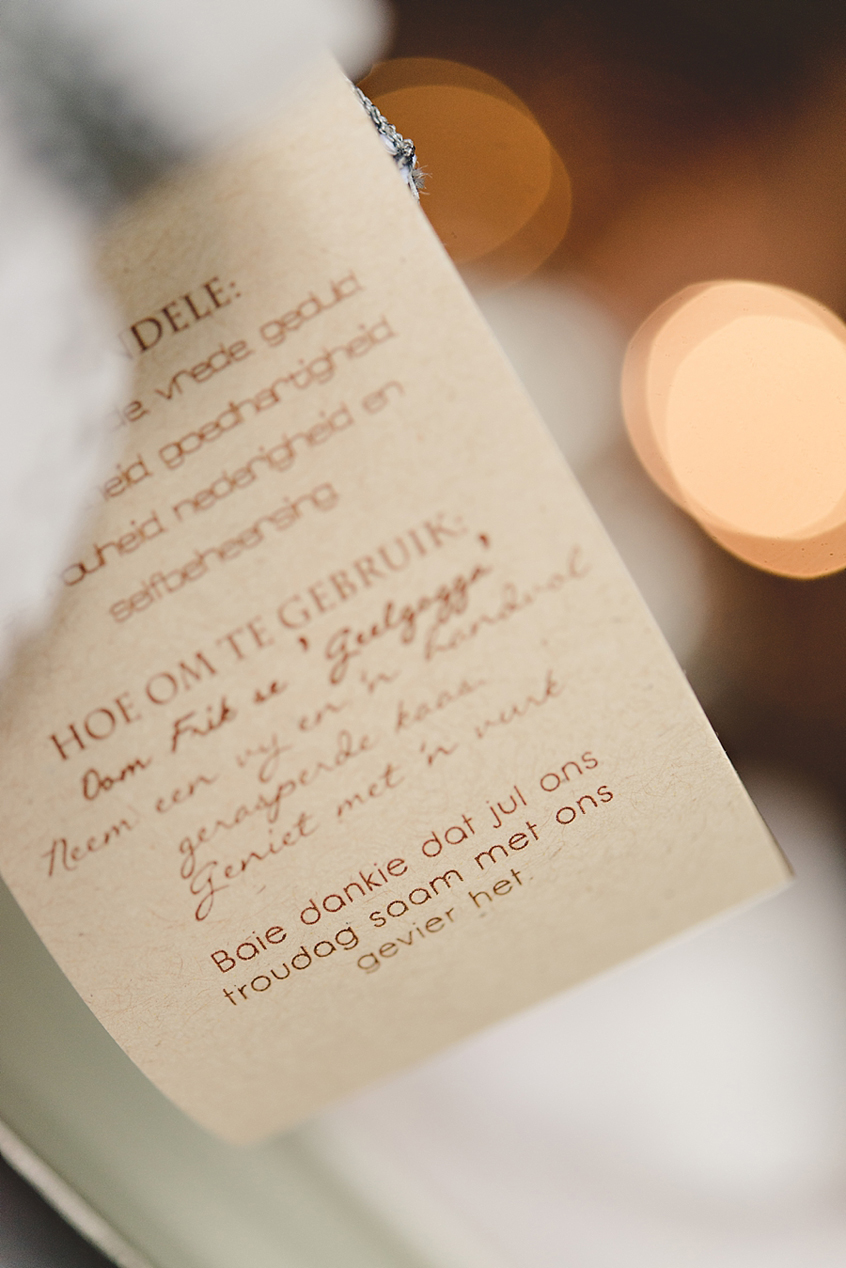 NDELE:
de vrede geduld
heid goedhartigheid
ouheid nederigheid en
selfbeheersing.
HOE OM TE GEBRUIK:
Oom Frik se 'Geelgogga'
Neem een vy en 'n handvol
gerasperde kaas.
Geniet met 'n vurk
Baie dankie dat jul ons
troudag saam met ons
gevier het.